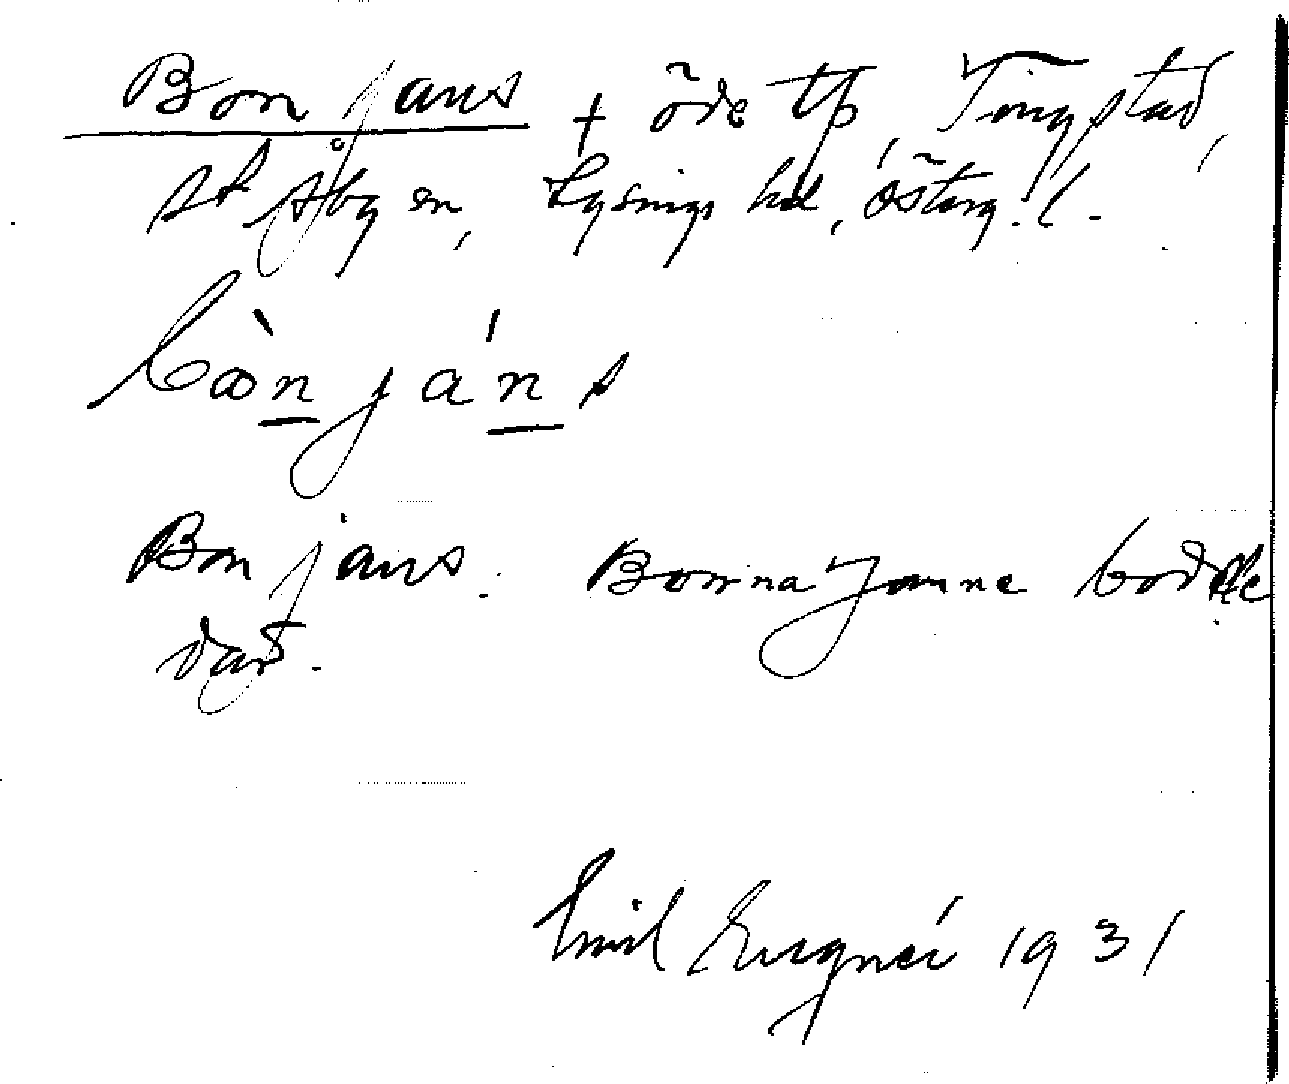 Bonjans † öde tp, Tingstad,
st Åby sn, Lysings hd, Österg. l.
Bonjans. Bonna Janne bodde
där.
Emil 1931